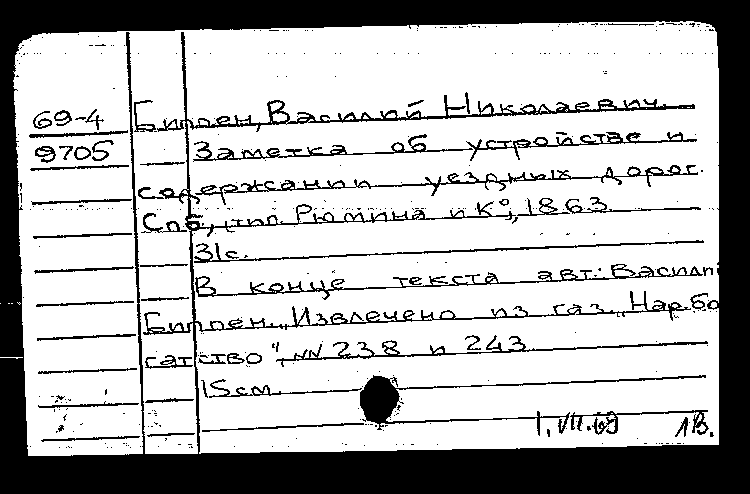 69-4 Биппен, Василий Николаевич.
9705 Заметка об устройстве и
содержании уездных дорог.
Спб., тип. Рюмина и К°, 1863.
31с.
В конце текста авт.: Василий
Биппен. „Извлечено из газ. „Нар.бо
гатство", NN 238 и 243.
15см.
1.VII.69 1В.